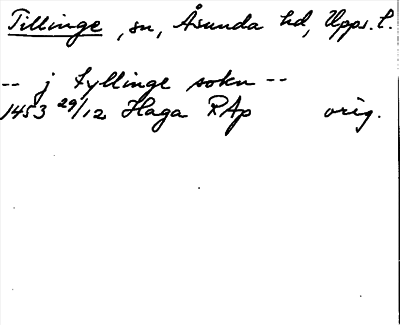 Tillinge, sn, Åsunda hd, Upps. l.
-- j tyllinge sokn --
1453 29/12 Haga RAp orig.